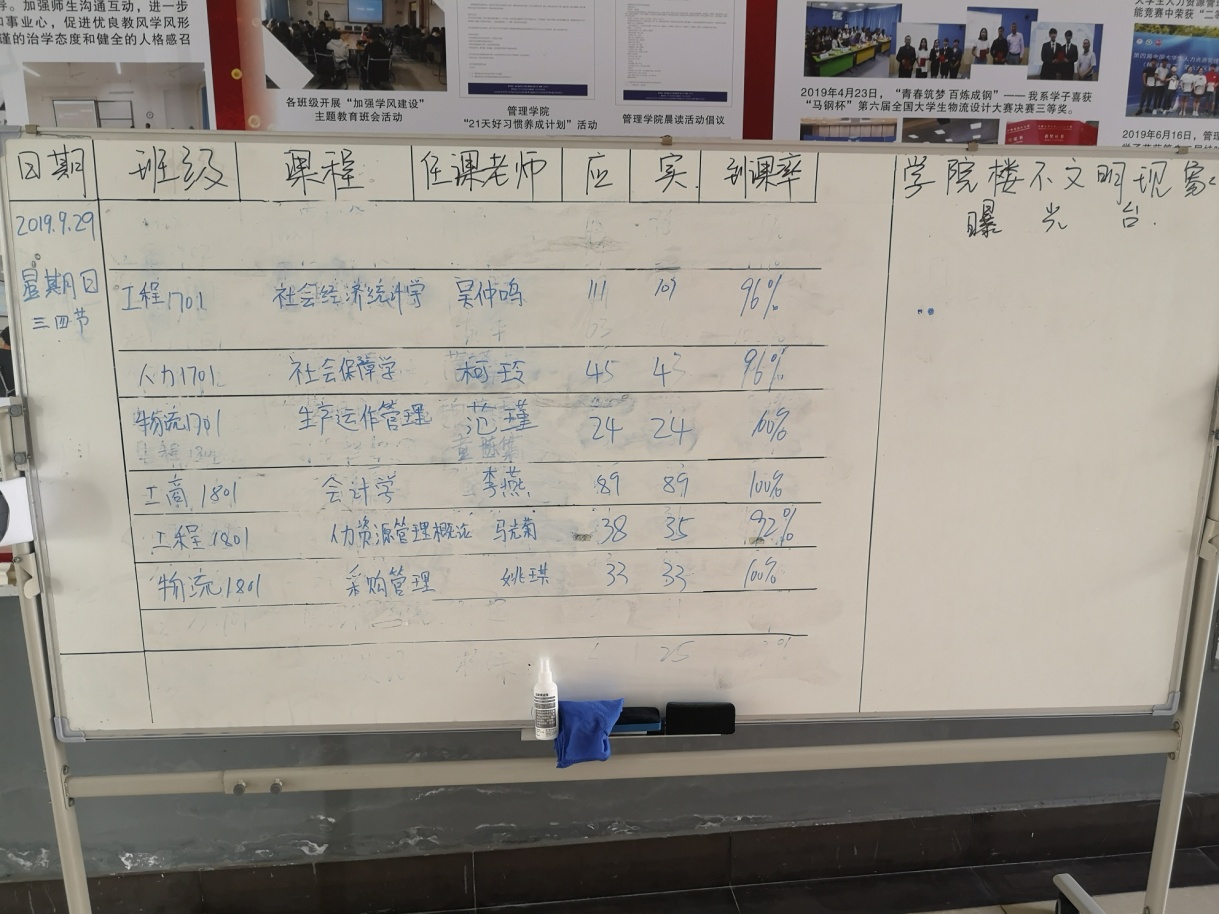 导。加强师生沟通互动，进一步
和事业心，促进优良教风学风形
谨的治学态度和健全的人格感召
各班级开展“加强学风建设”
主题教育班会活动
管理学院
“21天好习惯养成计划”活动
管理学院晨读活动倡议
2019年4月23日，“青春筑梦 百炼成钢”——我系学子喜获
“马钢杯”第六届全国大学生物流设计大赛决赛三等奖。
能竞赛中荣获“二等
2019年6月16日，管理
日期 班级 课程 任课老师 应 实 到课率
学院楼不文明现象
曝光台.
2019.9.29
星期日
三四节
工程1701 社会经济统计学 吴仲鸣 111 107 96%
人力1701 社会保障学 柯玲 45 43 96%
物流1701 生产运作管理 范瑾 24 24 100%
工商1801 会计学 李燕 89 89 100%
工程1801 人力资源管理概论 马先菊 38 35 92%
物流1801 采购管理 姚琪 33 33 100%
25